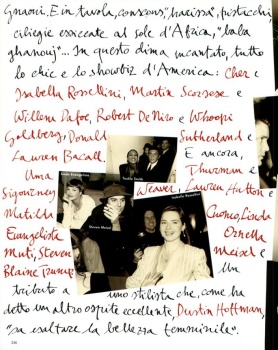 Gnaoui. E in tavola, couscous, "harissa", pistacchi
ciliegie essiccate al sole d'Africa, "baba
ghanouj"... In questo clima incantato, tutto
lo chic e lo showbiz d'America: Cher e
Isabella Rossellini, Martin Scorsese e
Willem Dafoe, Robert De Niro e Whoopi
Goldberg, Donald Sutherland e
Lauren Bacall. E ancora,
Uma Thurman e
Sigourney Weaver, Lauren Hutton e
Matilda Cuomo, Linda
Evangelista Ornella
Muti, Steven Meisel e
Blaine Trump. Un
tributo a uno stilista che, come ha
detto un altro ospite eccellente, Dustin Hoffman,
"sa esaltare la bellezza femminile".
Linda Evangelista
Steven Meisel
Isabella Rossellini